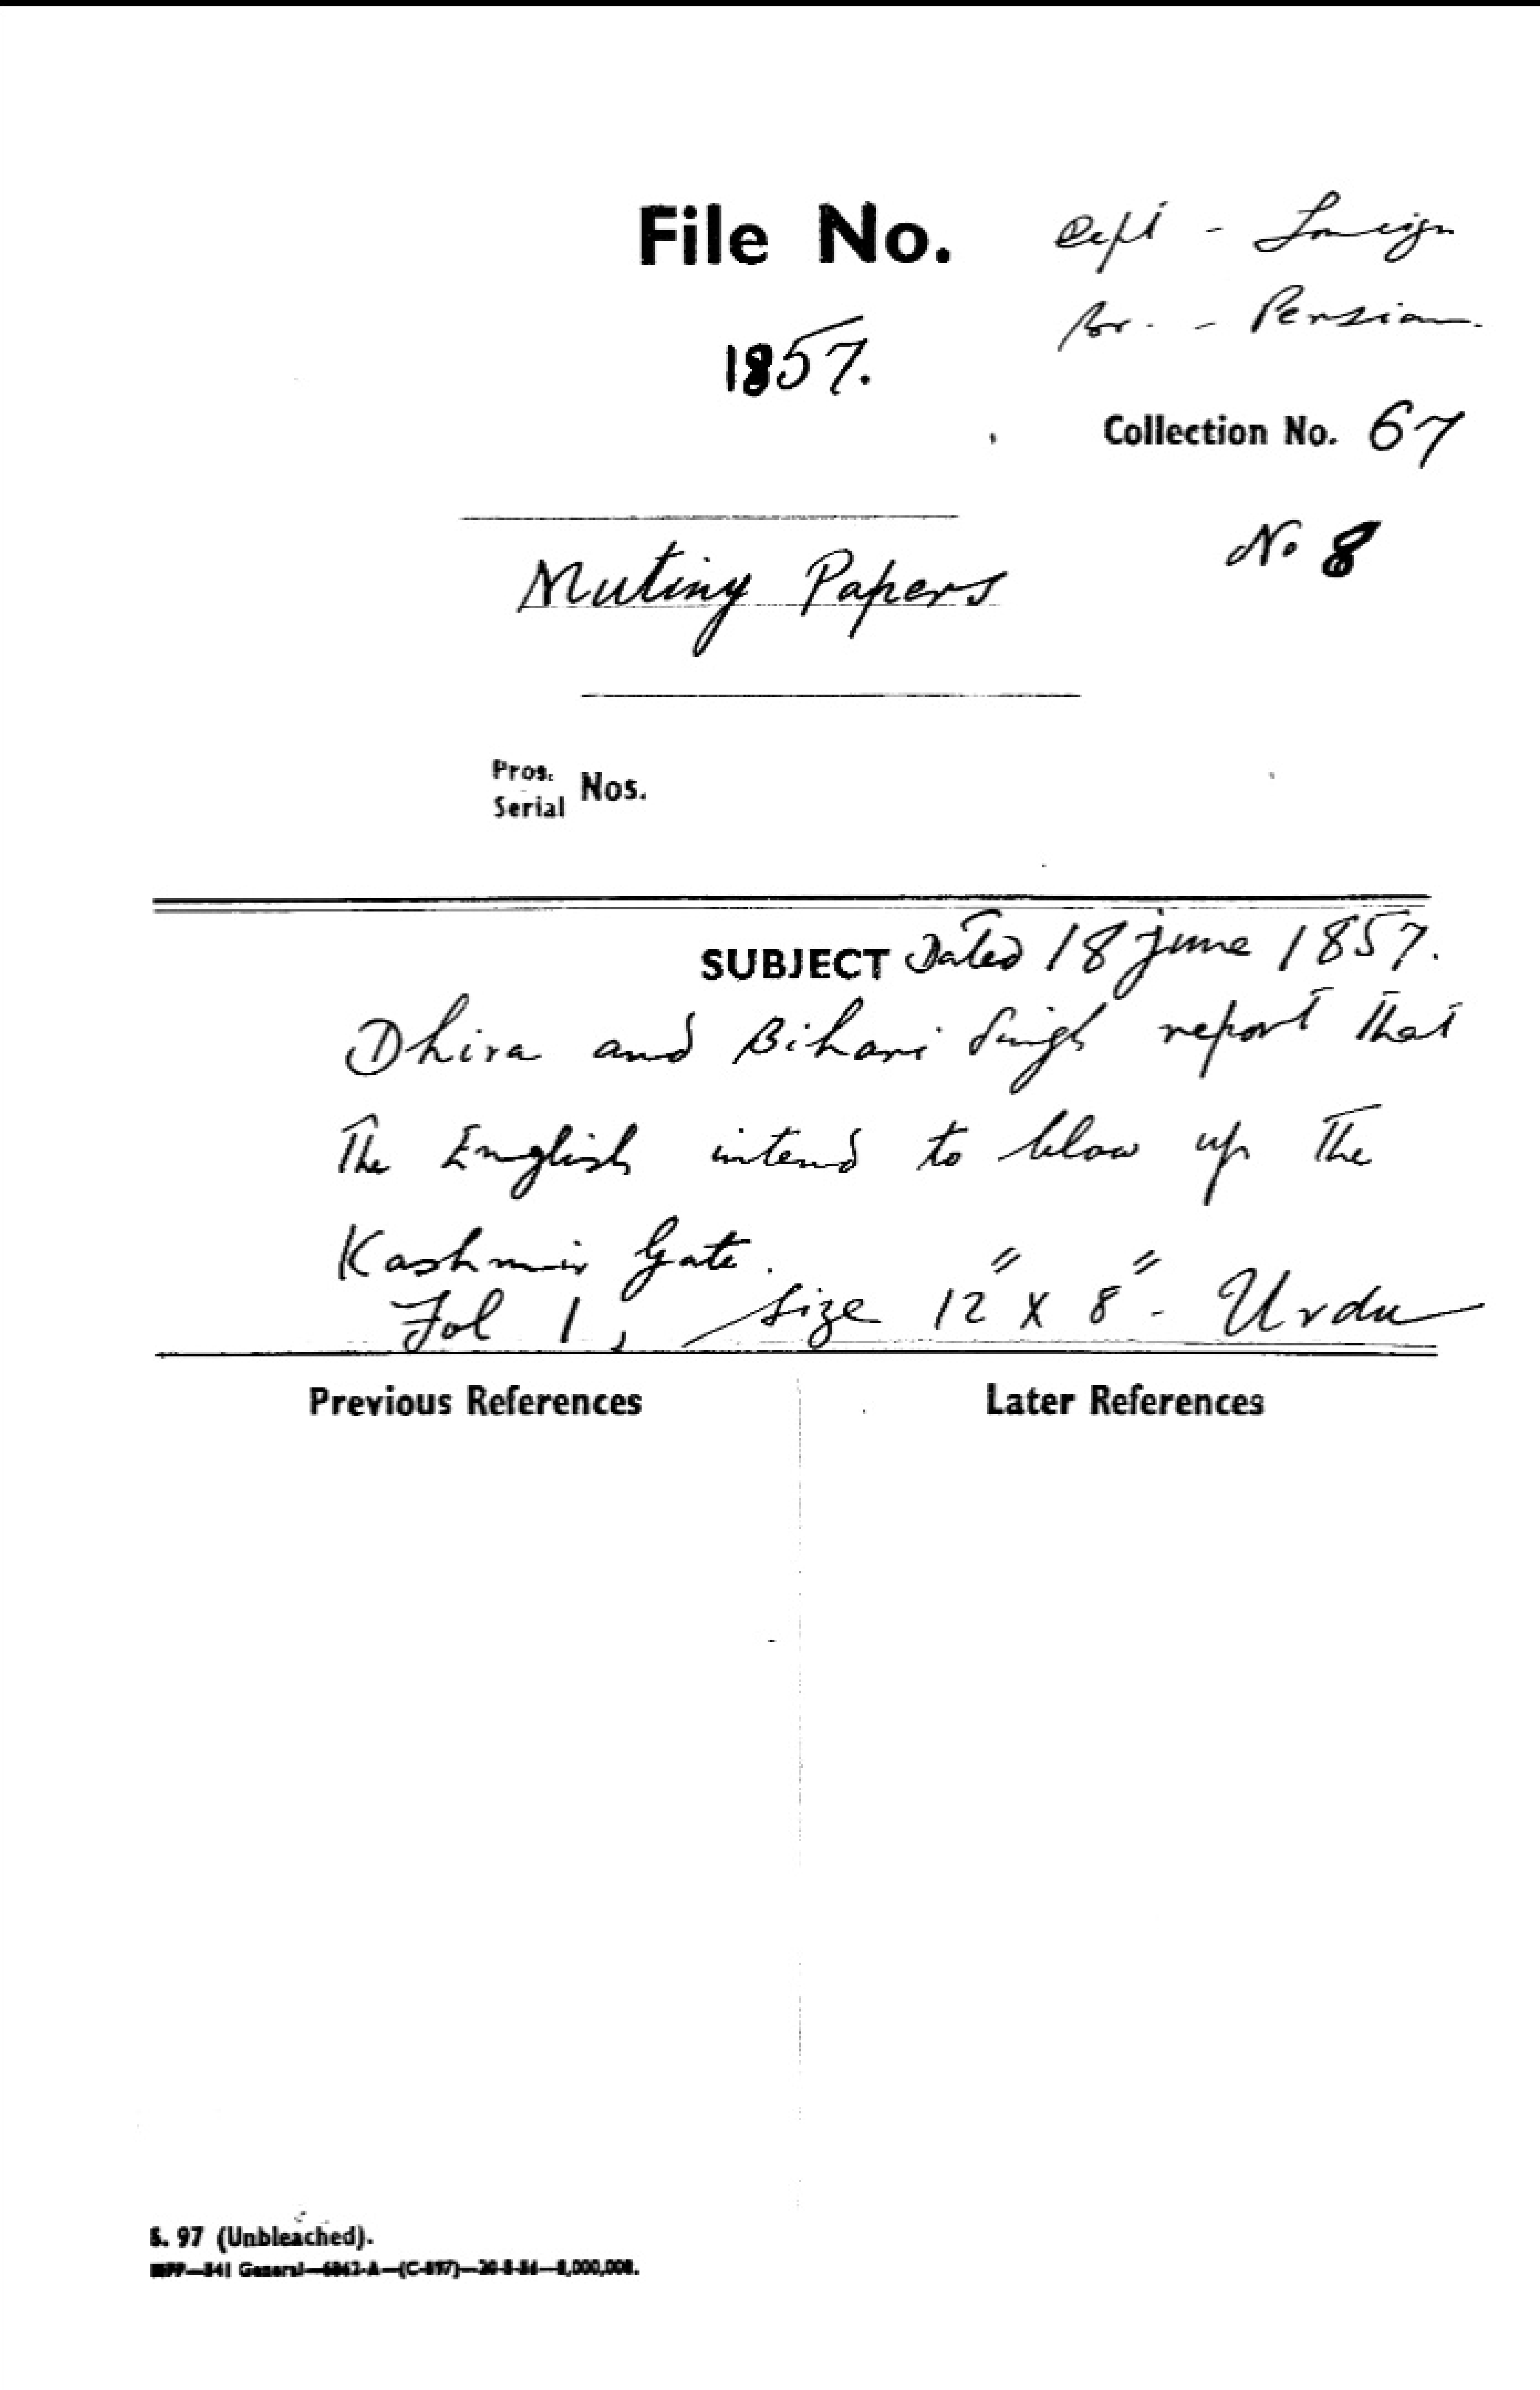 File No.
Dept - Foreign
Br. - Persian.
1857.
Collection No. 67
No 8
Mutiny Papers
Pros.
Serial Nos.
SUBJECT Dated 18 June 1857.
Dhira and Bihari Singh report that
The English intend to blow up The
Kashmir Gate.
Fol 1, Size 12" X 8" - Urdu
Previous References
Later References
S. 97 (Unbleached).
General